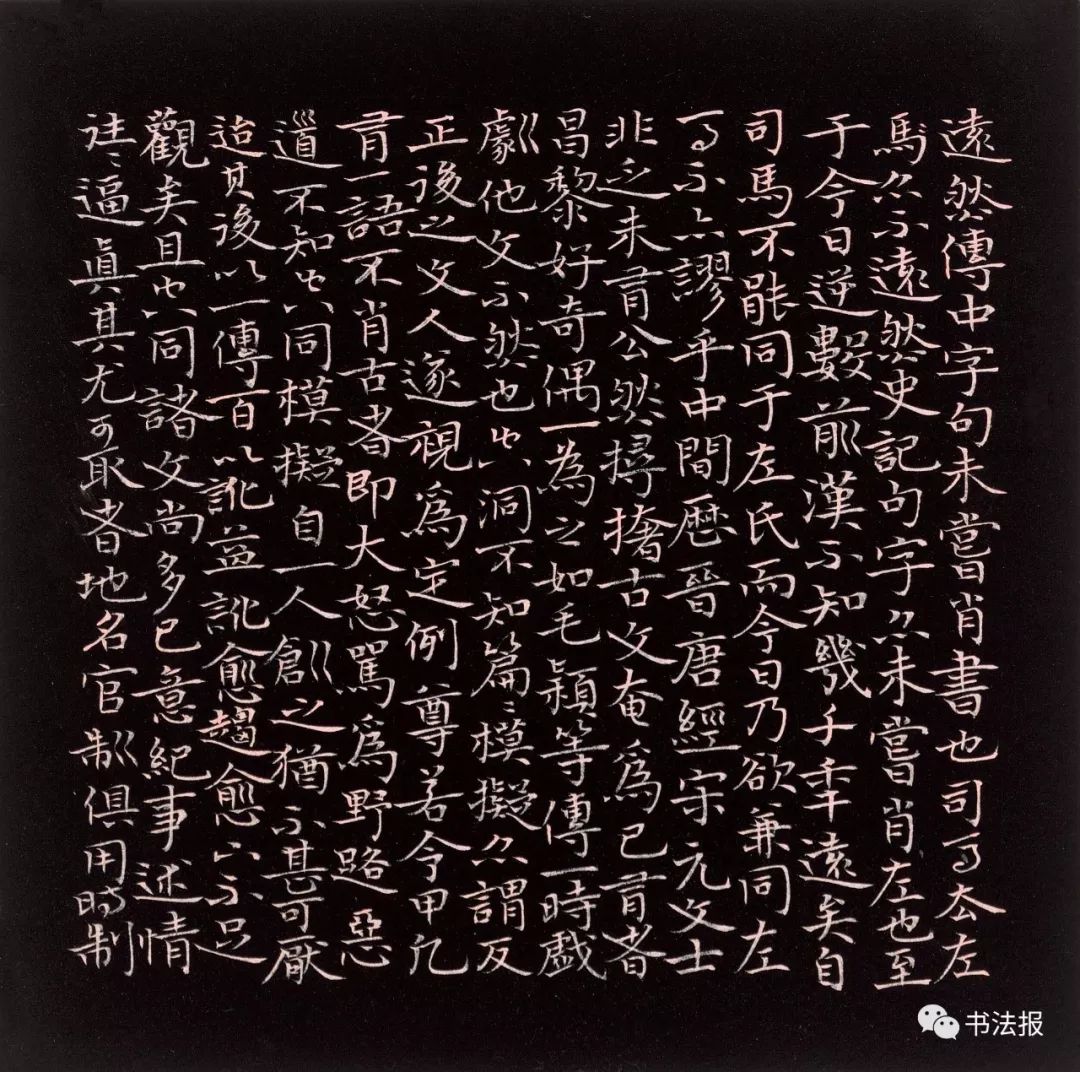 遠然傳中字句未嘗肖書也司马去左
馬亦不遠然史記句字亦未嘗肖左也至
于今日逆數前漢不知幾千年遠矣自
司馬不能同于左氏而今日乃欲兼同左
马不亦謬乎中間歷晉唐經宋元文士
非乏未有公然撏撦古文奄爲己有者
昌黎好奇偶一為之如毛穎等傳一時戲
劇他文不然也空洞不知篇〻模擬亦謂反
正後之文人遂視爲定例尊若令甲凡
有一語不肖古者即大怒罵爲野路惡
道不知空同模擬自一人創之猶不甚可厭
迨其後以一傳百以訛益訛愈趨愈下不足
觀矣且空同諸文尚多己意紀事述情
往〻逼真其尤可取者地名官制俱用時制
书法报